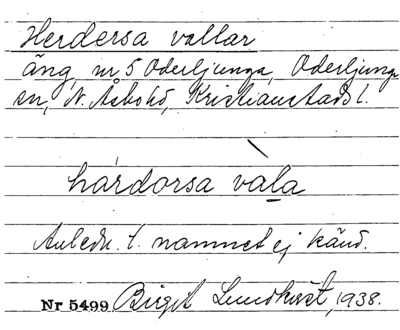 Herdersa vallar
äng, nr 5 Oderljunga, Oderljunga
sn, N. Åsbohd, Kristianstads l.
hárdorsa vàla
Anledn. t. namnet ej känd.
Nr 5499. Birgit Lundkvist, 1938.